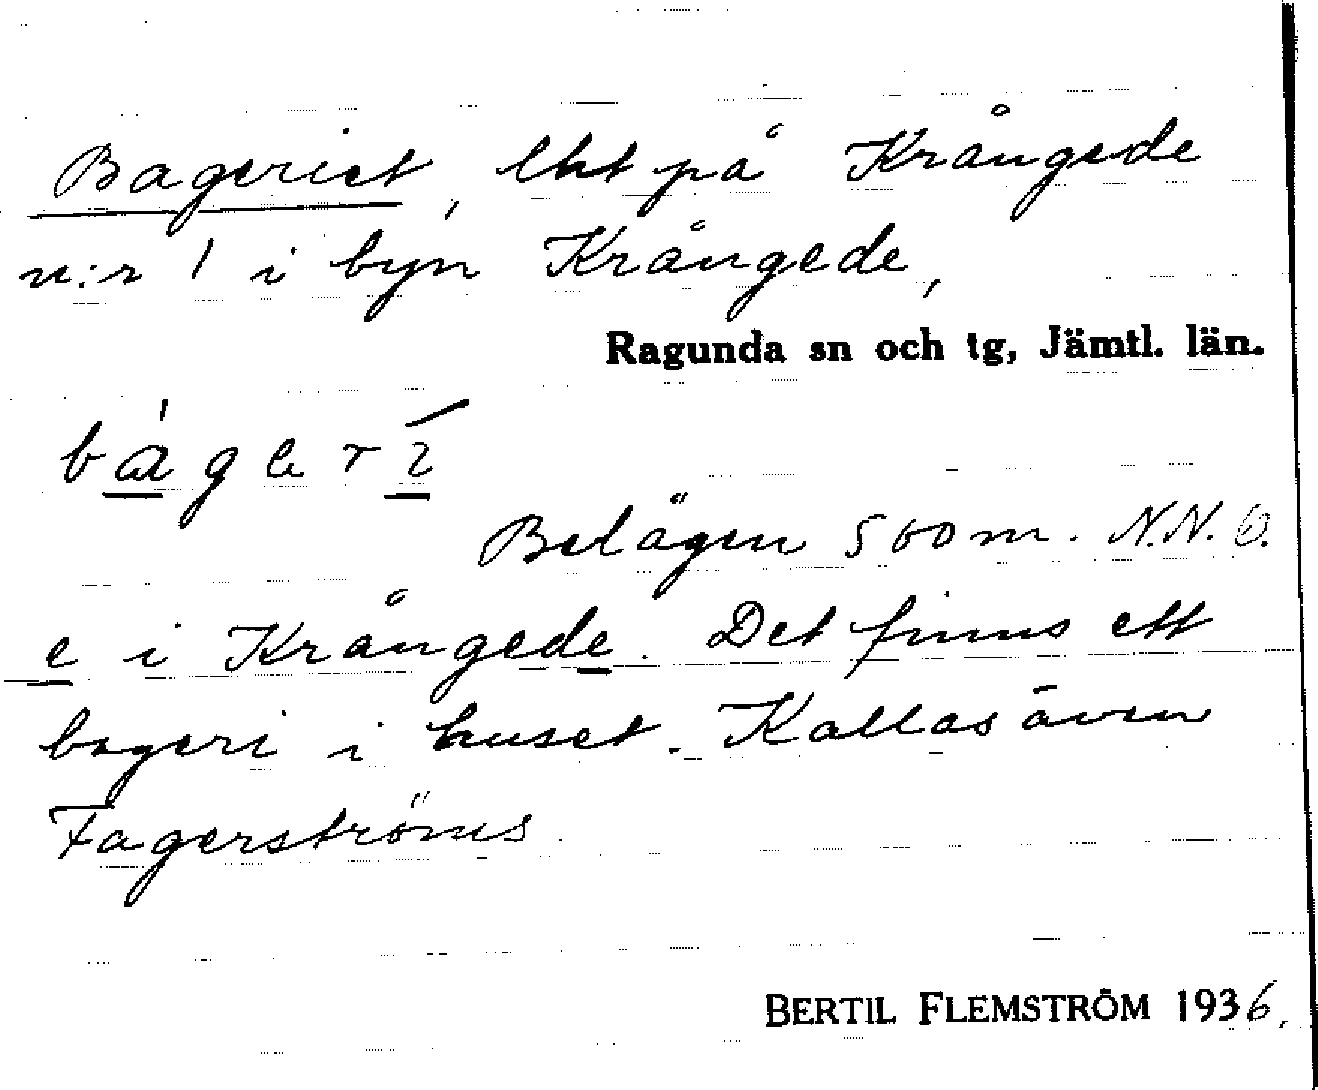 Bageriet, lht på Krångede
n:r 1 i byn Krångede,
Ragunda sn och tg, Jämtl. län.
Belägen 500 m. N.N.O.
e i Krångede. Det finns ett
bageri i huset. Kallas även
Fagerströms.
BERTIL FLEMSTRÖM 1936.